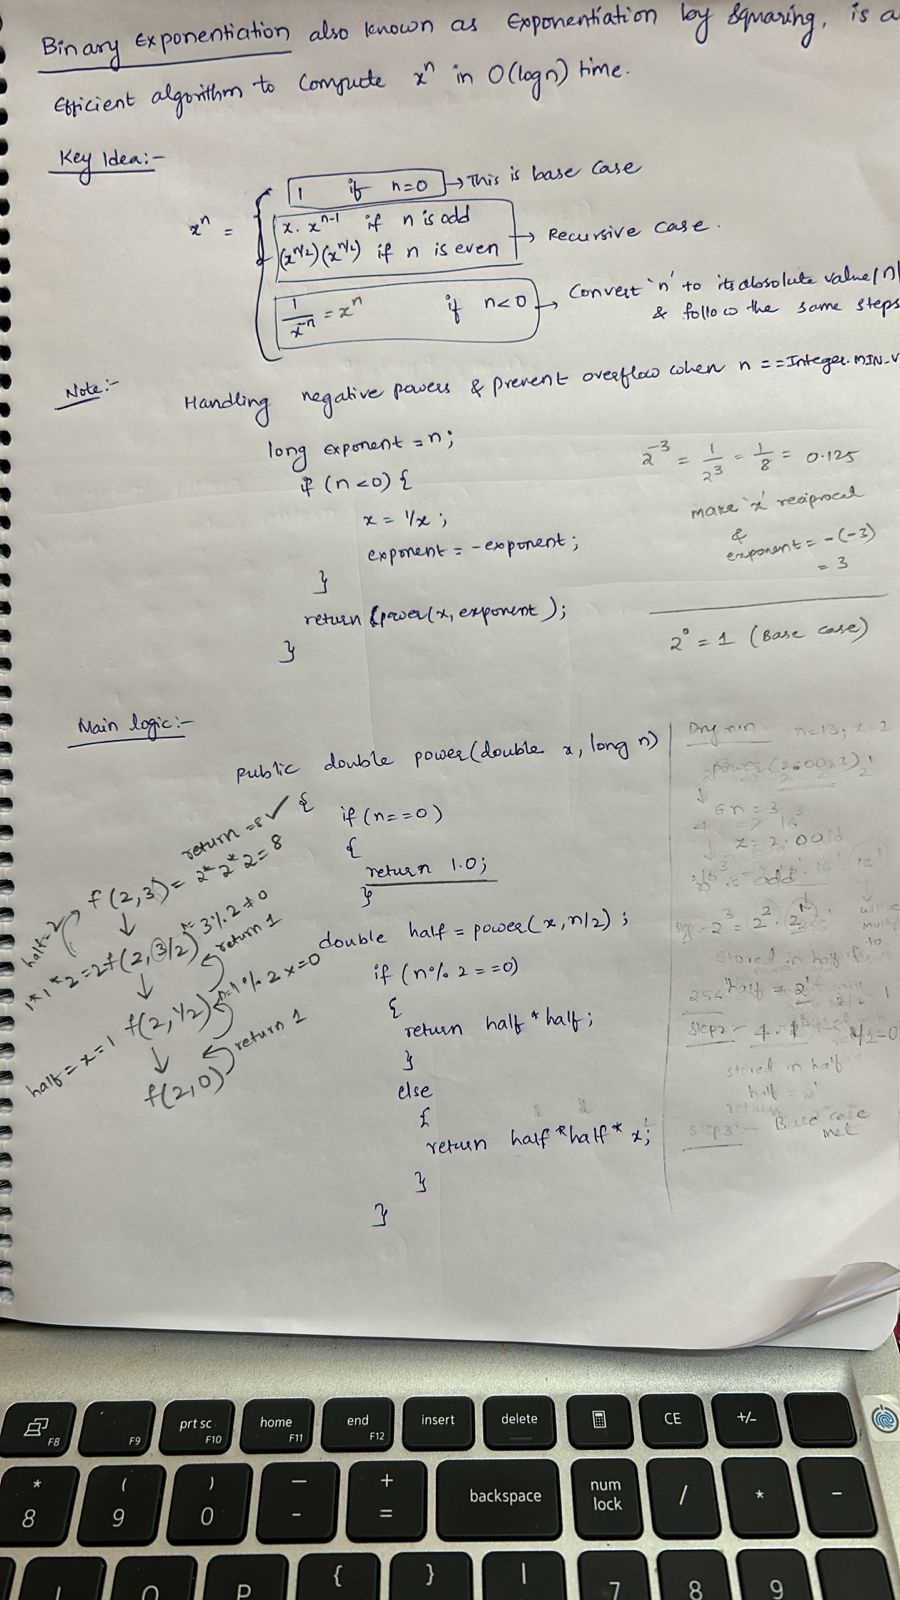 Binary Exponentiation also known as Exponentiation by Squaring, is a
Efficient algorithm to Compute xⁿ in O(logn) time.
Key Idea:-
xⁿ =
1 if n=0 → This is base case
x. xⁿ⁻¹ if n is odd
(x^n/2)(x^n/2) if n is even → Recursive case.
1/x⁻ⁿ = xⁿ if n<0 → Convert 'n' to its absolute value |n|
& follow the same steps
Note:-
Handling negative powers & prevent overflow when n ==Integer.MIN_V
long exponent = n;
if (n<0) {
x = 1/x;
exponent = -exponent;
}
return power(x, exponent);
}
2⁻³ = 1/2³ = 1/8 = 0.125
make 'x' reciprocal
&
exponent = -(-3)
= 3
2⁰ = 1 (Base case)
Main logic:-
public double power(double x, long n)
{
if (n==0)
{
return 1.0;
}
double half = power(x, n/2);
if (n% 2 ==0)
{
return half * half;
}
else
{
return half * half * x;
}
}
return =8 ✓
half=2
f(2,3) = 2*2*2 = 8
1*1*2=2
f(2,3/2)
3%2≠0
return 1
f(2,1/2)
half = x = 1
return 1
f(2,0)
Dry run
n=13, x=2
n = 3
x = 2.00
odd
2³ = 2² .
stored in half
half = 2¹
step2:-
1/2=0
stored in half
half = 2¹
return
step3:- Base case
met
F8
F9
prt sc
F10
home
F11
end
F12
insert
delete
CE
+/-
*
8
(
9
)
0
_
-
+
=
backspace
num
lock
/
*
-
O
P
{
}
|
7
8
9